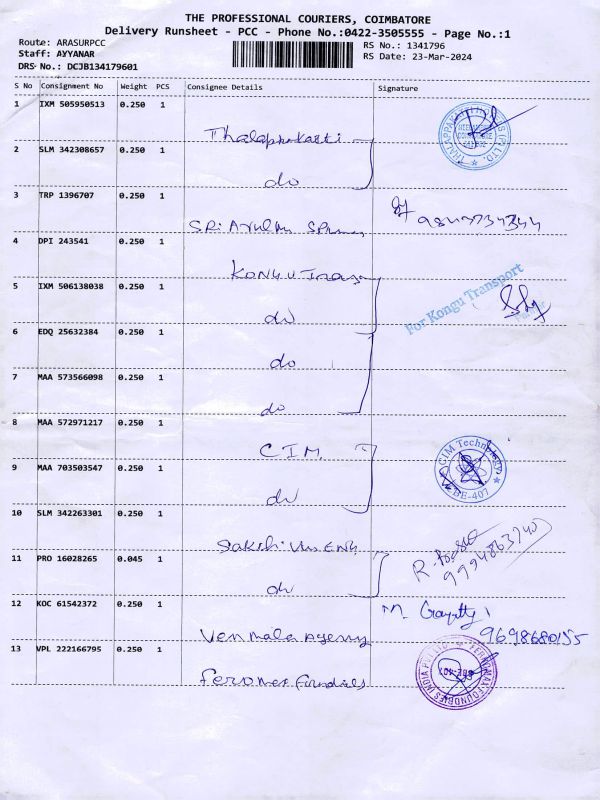 THE PROFESSIONAL COURIERS, COIMBATORE
Delivery Runsheet - PCC - Phone No.:0422-3505555 - Page No.:1
Route: ARASURPCC
RS No.: 1341796
Staff: AYYANAR
RS Date: 23-Mar-2024
DRS No.: DCJB134179601
S No Consignment No Weight PCS Consignee Details Signature
1 IXM 505950513 0.250 1
Thalappakatti
2 SLM 342308657 0.250 1
do
3 TRP 1396707 0.250 1
SRi
4 DPI 243541 0.250 1
KONGU
5 IXM 506138038 0.250 1
For Kongu Transport
do
6 EDQ 25632384 0.250 1
do
7 MAA 573566098 0.250 1
do
8 MAA 572971217 0.250 1
C.I.M.
CIM Technology
BE-407
9 MAA 703503547 0.250 1
do
10 SLM 342263301 0.250 1
Sakthi
11 PRO 16028265 0.045 1
R.
do
12 KOC 61542372 0.250 1
M.
9698680155
Venmala Agency
13 VPL 222166795 0.250 1